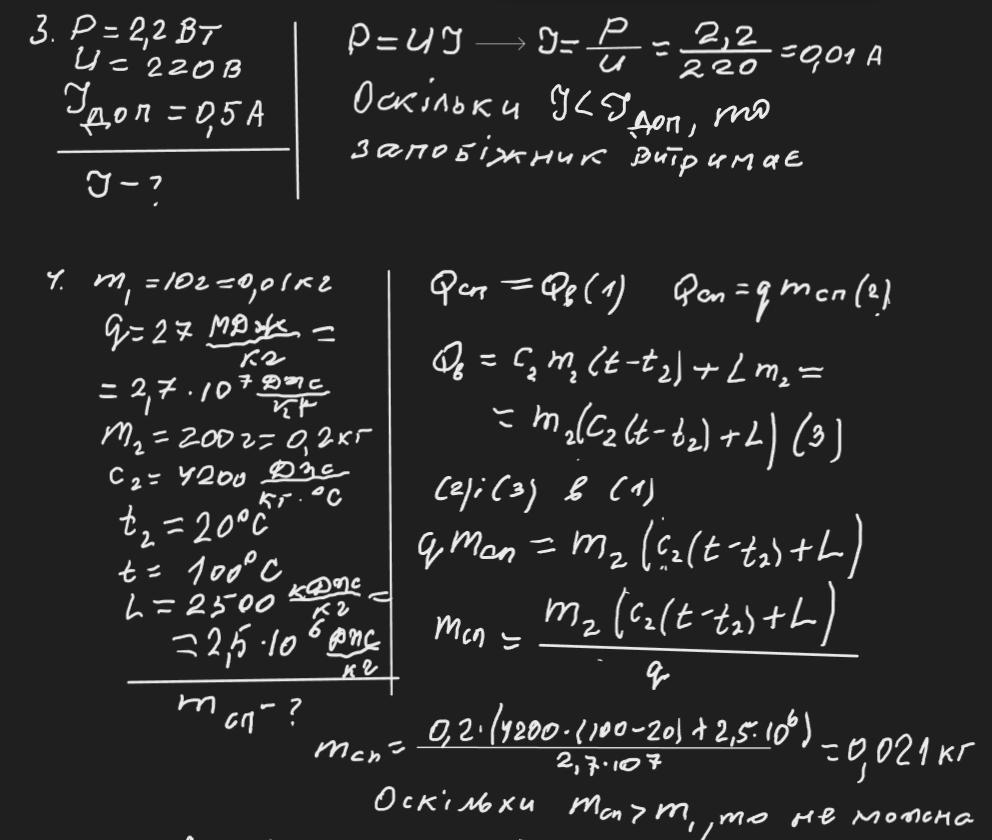 3. P = 2,2 Вт
U = 220 В
Iдоп = 0,5 А
I - ?
P = UI → I = P/U = 2,2/220 = 0,01 А
Оскільки I < Iдоп, то
запобіжник витримає
4. m₁ = 10г = 0,01кг
q = 27 МДж/кг =
= 2,7 · 10⁷ Дж/кг
m₂ = 200г = 0,2кг
c₂ = 4200 Дж/кг·°C
t₂ = 20°C
t = 100°C
L = 2500 кДж/кг =
= 2,5 · 10⁶ Дж/кг
mсп - ?
Qсп = Qв (1) Qсп = q mсп (2)
Qв = c₂ m₂ (t - t₂) + L m₂ =
= m₂(c₂(t - t₂) + L) (3)
(2) і (3) в (1)
q mсп = m₂ (c₂(t - t₂) + L)
mсп = m₂ (c₂(t - t₂) + L)/q
mсп = 0,2·(4200·(100-20) + 2,5·10⁶)/2,7·10⁷ = 0,021 кг
Оскільки mсп > m₁, то не можна